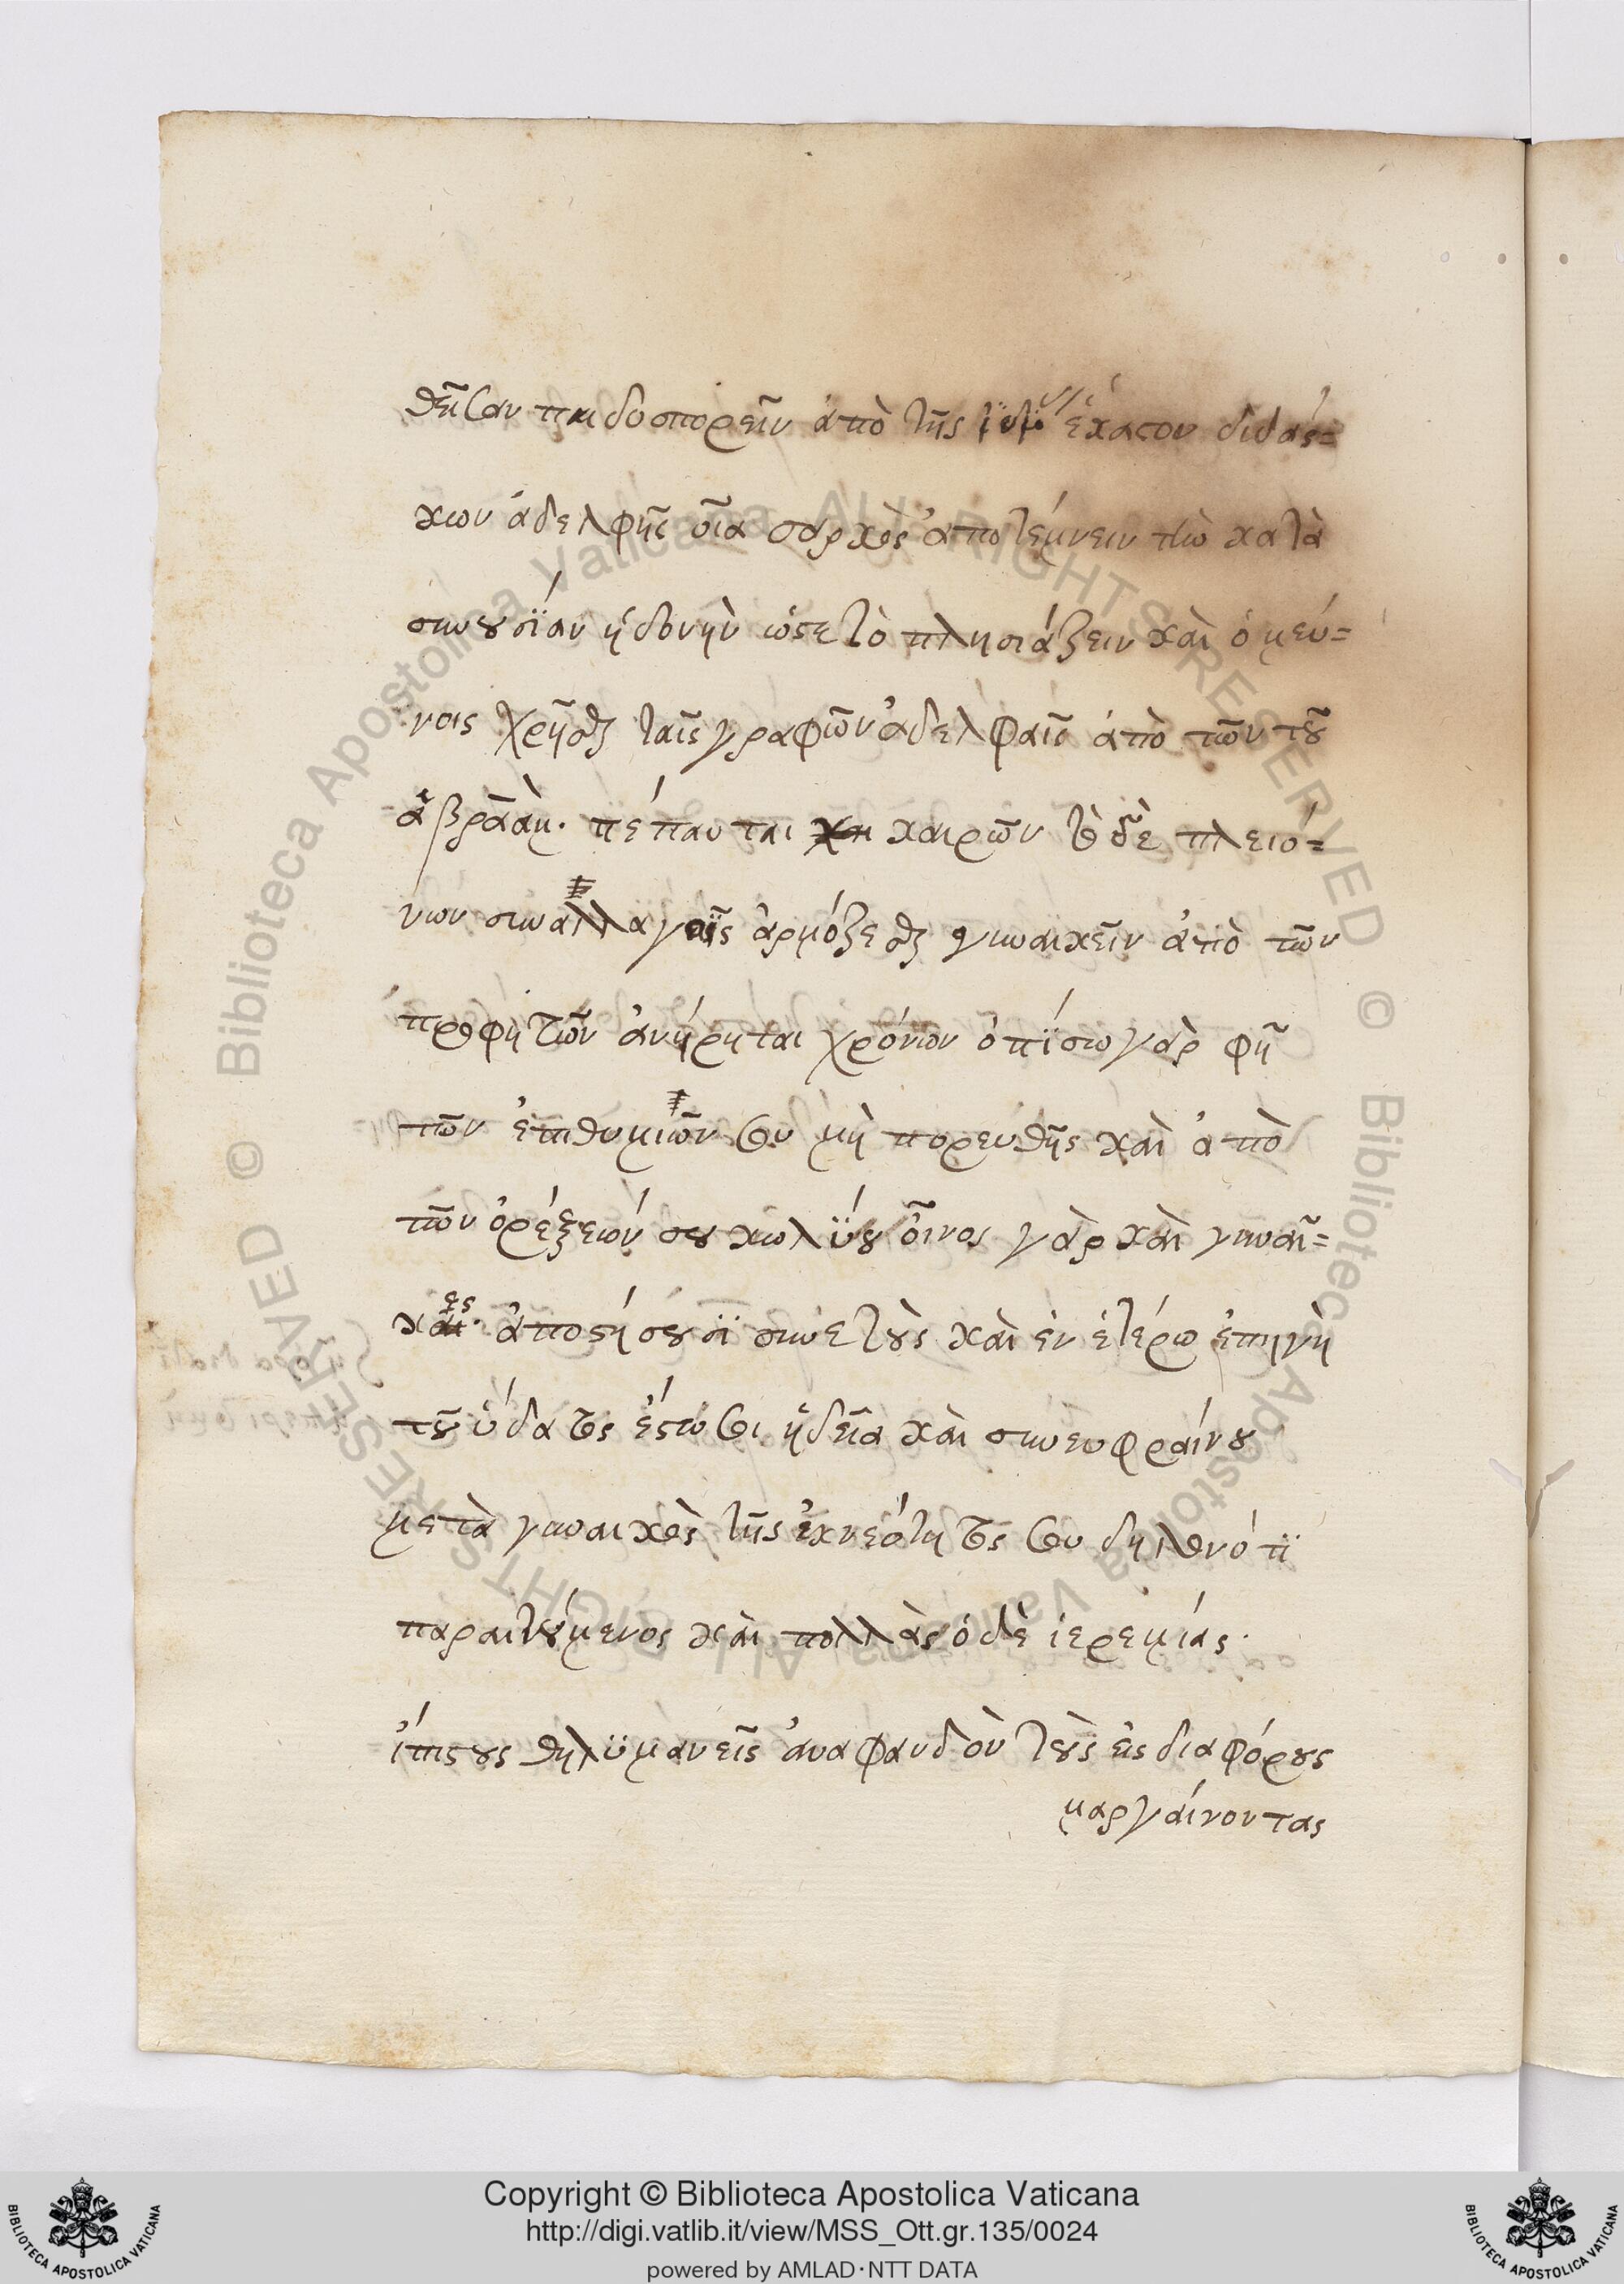 θεῖσαν παιδοσπορεῖν ἀπὸ τῆς ἕκαστον διδάσ=
κων ἀδελφῆς οἷα σαρκὸς ἀποτέμνειν τὴν κατὰ
συνουσίαν ἡδονὴν ὥστε τὸ πλησιάζειν καὶ ὁμεύ=
νοις χρῆσθαι ταῖς γραφῶν ἀδελφαῖς ἀπὸ τῶν τοῦ
ἀβραὰμ· πέπαυται καιρῶν τὸ δὲ πλειό=
νων συναλλαγαῖς ἁρμόζεσθαι γυναικεῖν ἀπὸ τῶν
προφητῶν ἀνήρηται χρόνων ὀπίσω γὰρ φη
τῶν ἐπιθυμιῶν σου μὴ πορευθῆς καὶ ἀπὸ
τῶν ὀρέξεών σου κωλύου οἶνος γὰρ καὶ γυναῖ=
κες ἀποστήσουσι συνετοὺς καὶ ἐν ἑτέρω ἐπηγὴ
τοῦ ὕδατος ἔστω σοι ἡδεῖα καὶ συνευφραίνου
μετὰ γυναικὸς τῆς ἐκ νεότητος σου δηλονότι
παραιτούμενος καὶ πολλὰς ὁ δὲ ἱερεμίας·
ἵππους θηλυμανεῖς ἀναφανδὸν τοὺς εἰς διαφόρους
μαργαίνοντας
Copyright © Biblioteca Apostolica Vaticana
http://digi.vatlib.it/view/MSS_Ott.gr.135/0024
powered by AMLAD·NTT DATA
BIBLIOTECA APOSTOLICA VATICANA
BIBLIOTECA APOSTOLICA VATICANA
© Biblioteca Apostolica Vaticana ALL RIGHTS RESERVED
© Biblioteca Apostolica Vaticana ALL RIGHTS RESERVED